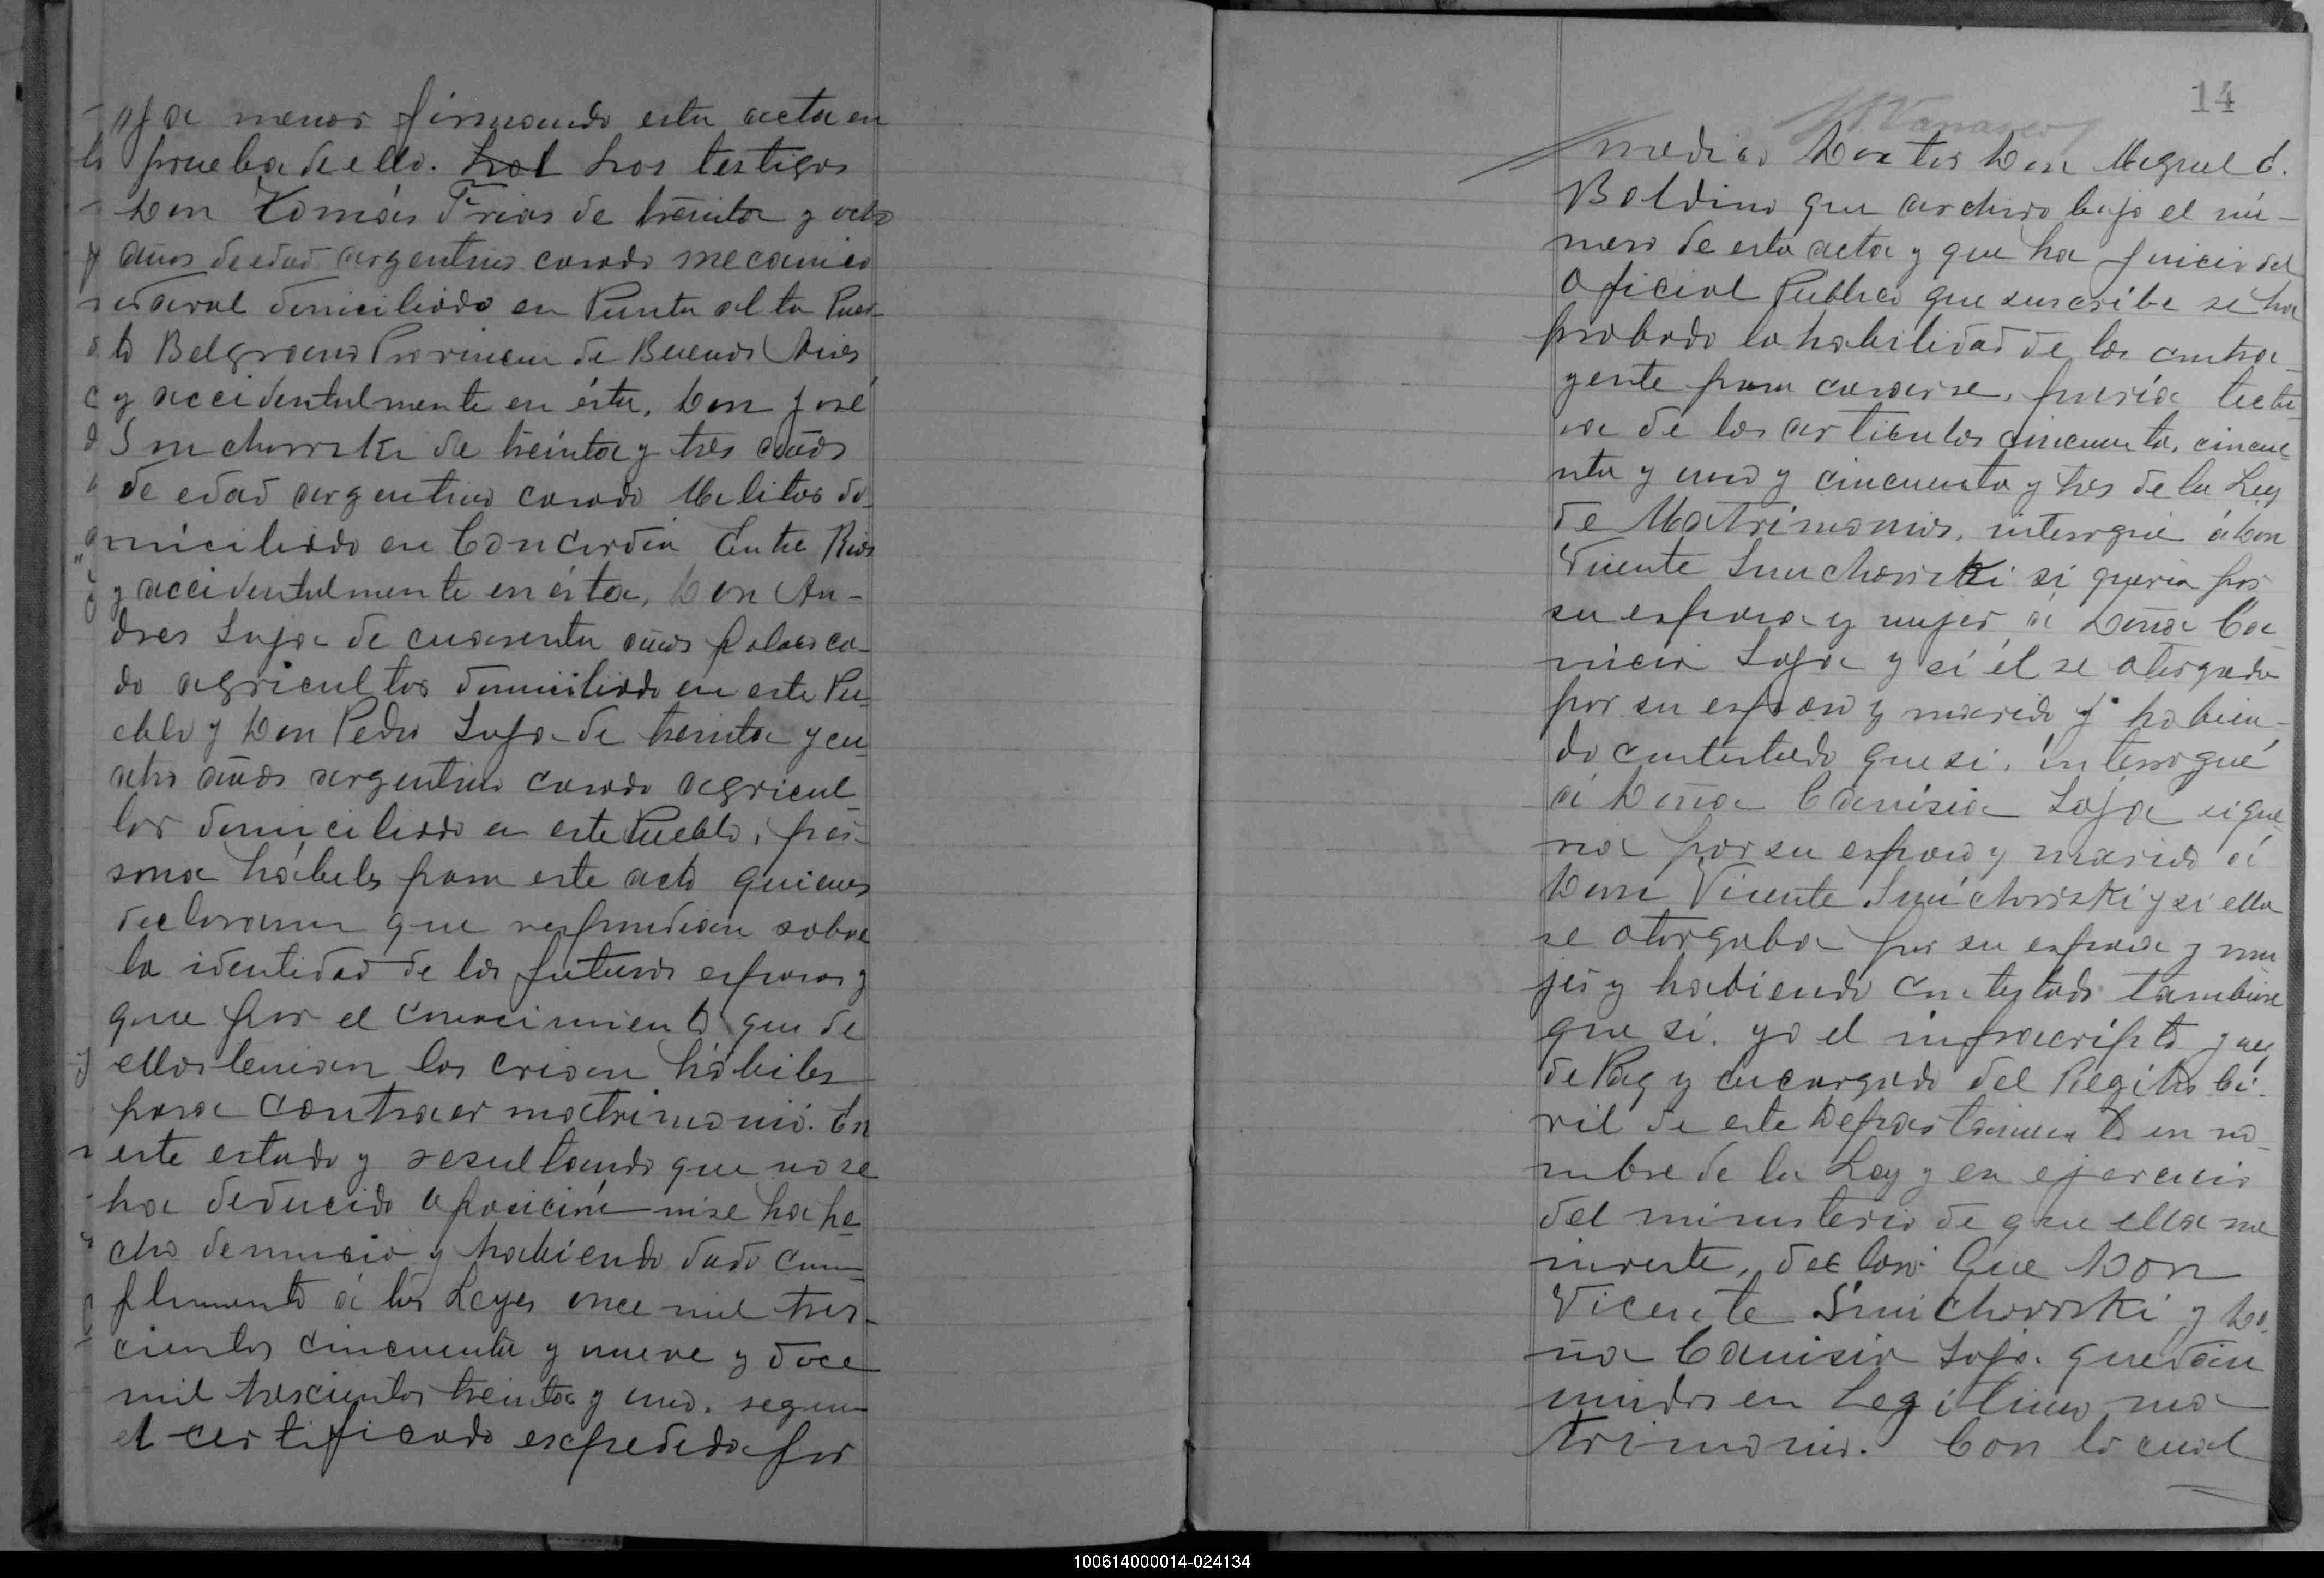 ja menor firmando esta acta en
prueba de ello. Los testigos
Don Tomás Frias de treinta y ocho
años de edad argentino casado mecanico
naval domiciliado en Punta alta Puer-
to Belgrano Provincia de Buenos Aires
y accidentalmente en ésta, Don José
Smichowski de treinta y tres años
de edad argentino casado Militar do-
miciliado en Concordia Entre Rios
y accidentalmente en ésta, Don An-
dres Supa de cuarenta años polaco ca-
do agricultor domiciliado en este Pu-
eblo y Don Pedro Supa de treinta y cu-
atro años argentino casado agricul-
tor domiciliado en este Pueblo, per-
sona hábiles para este acto quienes
declararon que respondian sobre
la identidad de los futuros esposos y
que por el conocimiento que de
ellos tenian los crian hábiles
para contraer matrimonio. En
este estado y resultando que no se
ha deducido oposición ni se ha he-
cho denuncia y habiendo dado cum-
plimento á las Leyes once mil tres-
cientos cincuenta y nueve y doce
mil trescientos treinta y uno. segun
el certificado expedido por
14
medico Doctor Don Miguel C.
Boldino que archivo bajo el nú-
mero de esta acta y que ha juicio del
Oficial Publico que suscribe se ha
probado la habilidad de los contra-
yente para casarse, previa lectu
ra de los articulos cincuenta, cincue-
nta y uno y cincuenta y tres de la Ley
de Matrimonios, interrogué á Don
Vicente Smichowski si queria por
su esposa y mujer á Doña Ca
nicia Supa y si él se otorgada
por su esposo y marido y habien-
do contestado que si, interrogué
á Doña Canisia Supa si que-
ria por su esposo y marido á
Don Vicente Smichowski y si ella
se otorgaba por su esposa y mu
jer y habiendo contestado tambien
que si. yo el infrascripto juez
de Paz y encargado del Regitro Ci-
vil de este Departamento en no-
mbre de la Ley y en ejercicio
del ministerio de que ella me
inviste, declaro: Que Don
Vicente Smichowski y Do-
ña Canisia Supa. quedan
unidos en Legitimo ma
trimonio. Con lo cual
100614000014-024134